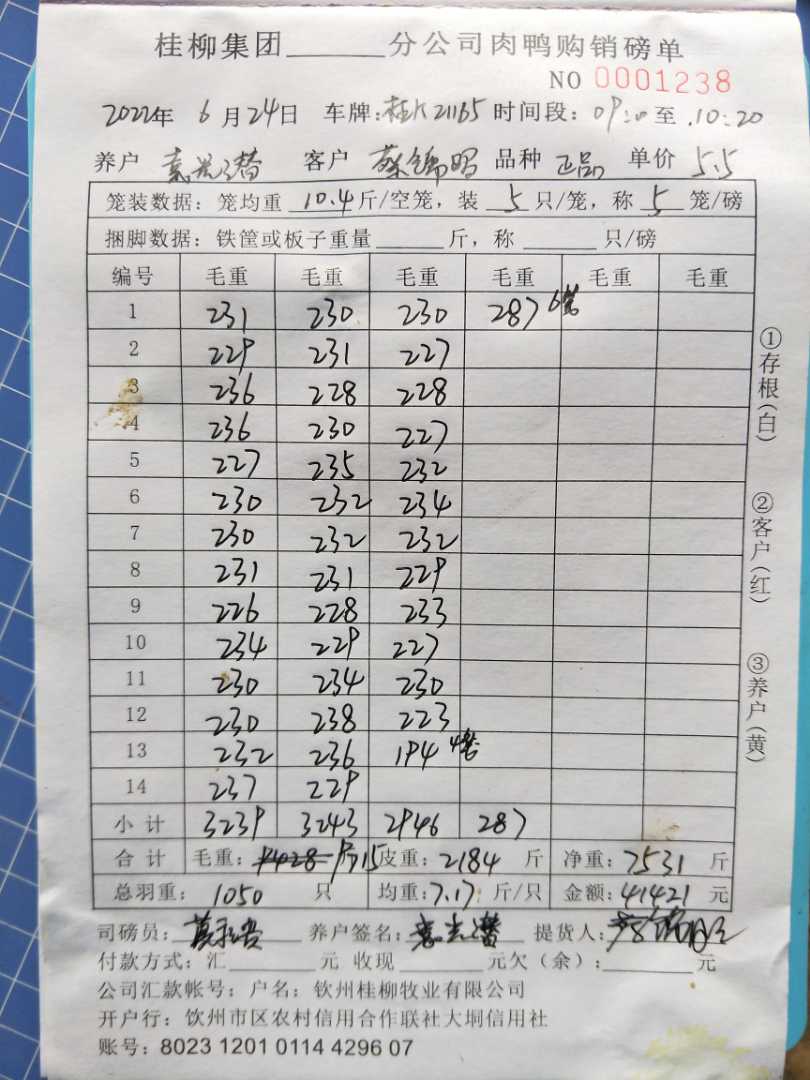 桂柳集团______分公司肉鸭购销磅单
NO 0001238
2022年 6月24日 车牌:桂K21165 时间段:09:20至.10:20
养户 客户 蔡锦明 品种 正品 单价 5.5
笼装数据:笼均重 10.4 斤/空笼,装 5 只/笼,称 5 笼/磅
捆脚数据:铁筐或板子重量______斤,称______只/磅
编号 毛重 毛重 毛重 毛重 毛重 毛重
1 231 230 230 287 6笼
2 229 231 227
3 236 228 228
4 236 230 227
5 227 235 232
6 230 232 234
7 230 232 232
8 231 231 229
9 226 228 233
10 234 229 227
11 230 234 230
12 230 238 223
13 232 236 194 4笼
14 237 229
小计 3239 3243 2946 287
合计 毛重: 9715 皮重:2184 斤 净重:7531 斤
总羽重:1050 只 均重:7.17 斤/只 金额:41421 元
司磅员: 养户签名: 提货人:
付款方式:汇______元 收现______元欠(余):______元
公司汇款帐号:户名:钦州桂柳牧业有限公司
开户行:钦州市区农村信用合作联社大垌信用社
账号:8023 1201 0114 4296 07
①存根(白)
②客户(红)
③养户(黄)